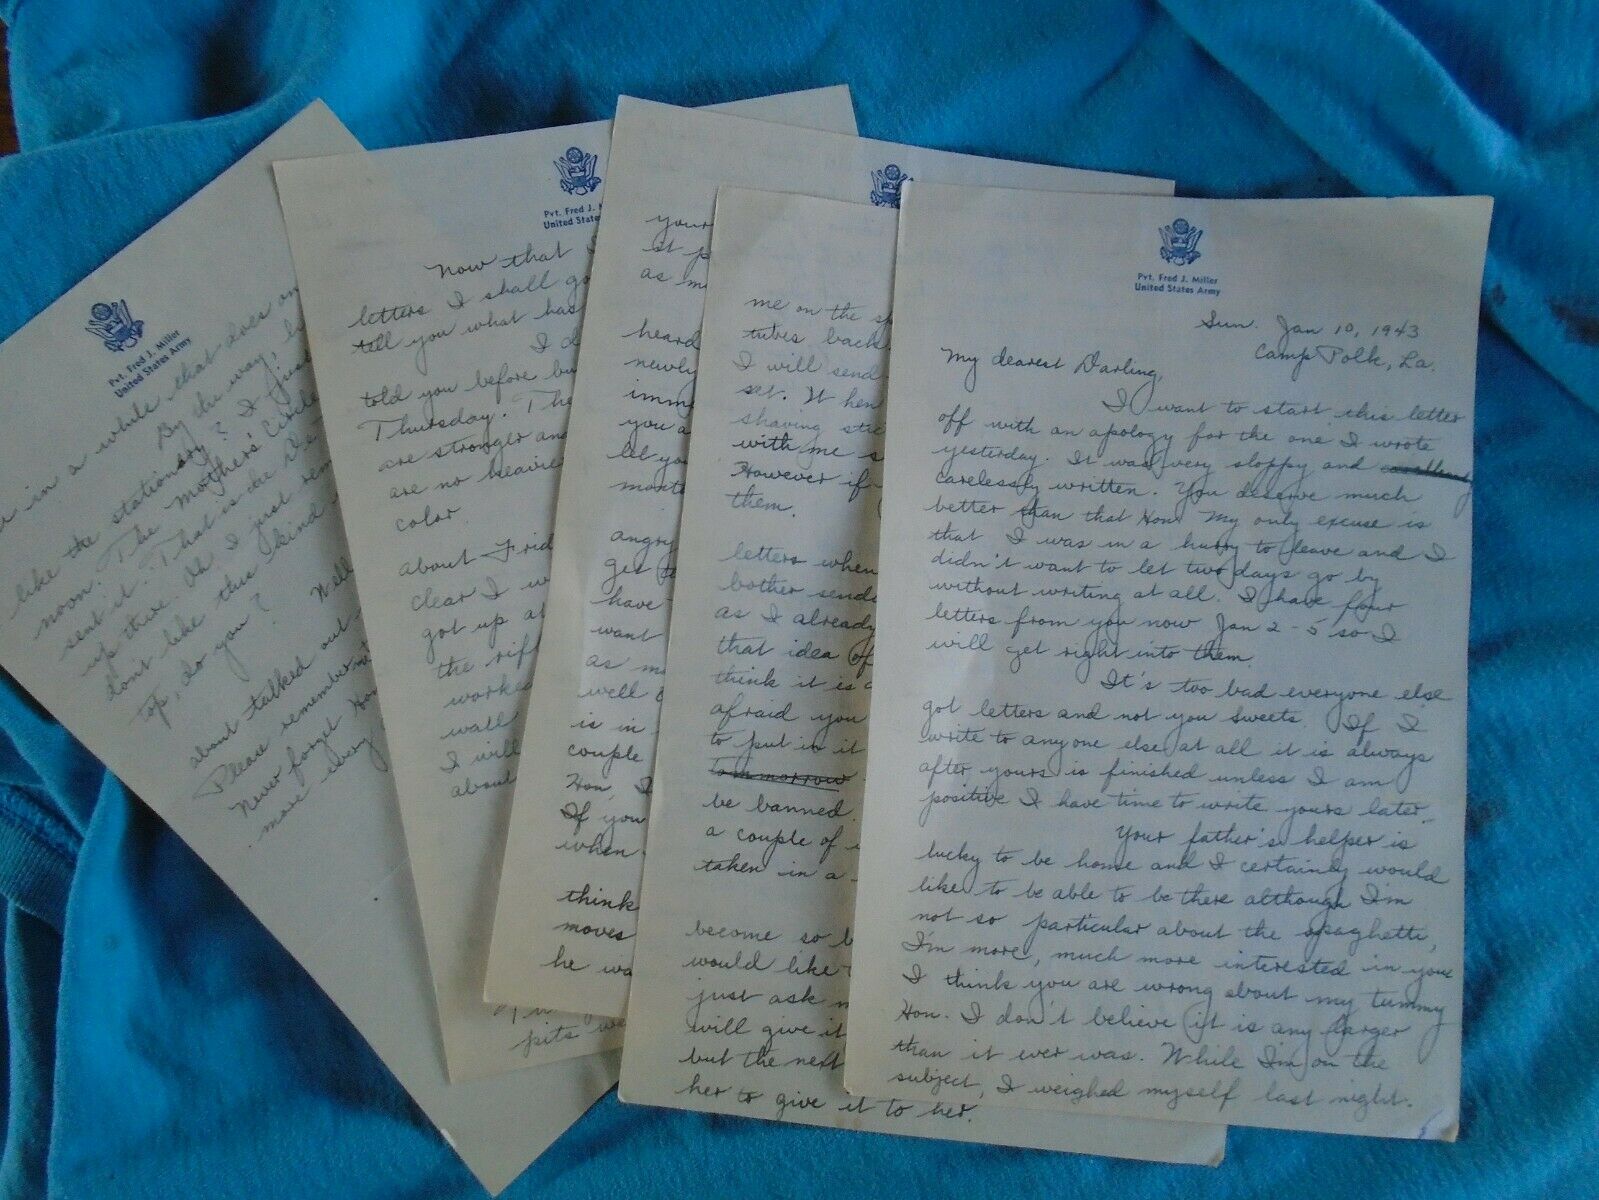 Pvt. Fred J. Miller
United States Army
Sun. Jan 10, 1943
Camp Polk, La.
My dearest Darling,
I want to start this letter
off with an apology for the one I wrote
yesterday. It was very sloppy and
carelessly written. You deserve much
better than that Hon. My only excuse is
that I was in a hurry to leave and I
didn't want to let two days go by
without writing at all. I have four
letters from you now Jan 2-5 so I
will get right into them.
It's too bad everyone else
got letters and not you Sweets. If I
write to anyone else at all it is always
after yours is finished unless I am
positive I have time to write yours later.
Your father's helper is
lucky to be home and I certainly would
like to be able to be there although I'm
not so particular about the spaghetti,
I'm more, much more interested in you.
I think you are wrong about my tummy
Hon. I don't believe it is any larger
than it ever was. While I'm on the
subject, I weighed myself last night.
me on the
tubes, back
I will send
set. If
shaving
with me
However if
them.
letters when
bother
as I already
that idea of
think it is a
afraid you
to put in it
tomorrow
be banned.
a couple of
taken in a
become so
would like
just ask
will give it
but the next
her to give it to her.
your
st
as
heard
newly
you a
let you
angry
get
have
want
as
well
is in
couple
Hon, I
If you
when
think
moves
he
Pvt. Fred J.
United States
Now that
letters I shall go
tell you what has
I
told you before
Thursday. The
are stronger and
are no
color.
about
clear I
got up at
the
worked
wall
I will
about
pits
Pvt. Fred J. Miller
United States Army
in a while that does
By the way,
like the stationary? I just
noon. The Mother's Circle
sent it. That is the
up there. Oh I just
don't like this kind
op, do you?
Well
about talked out
Please remember
Never forget Hon
more every